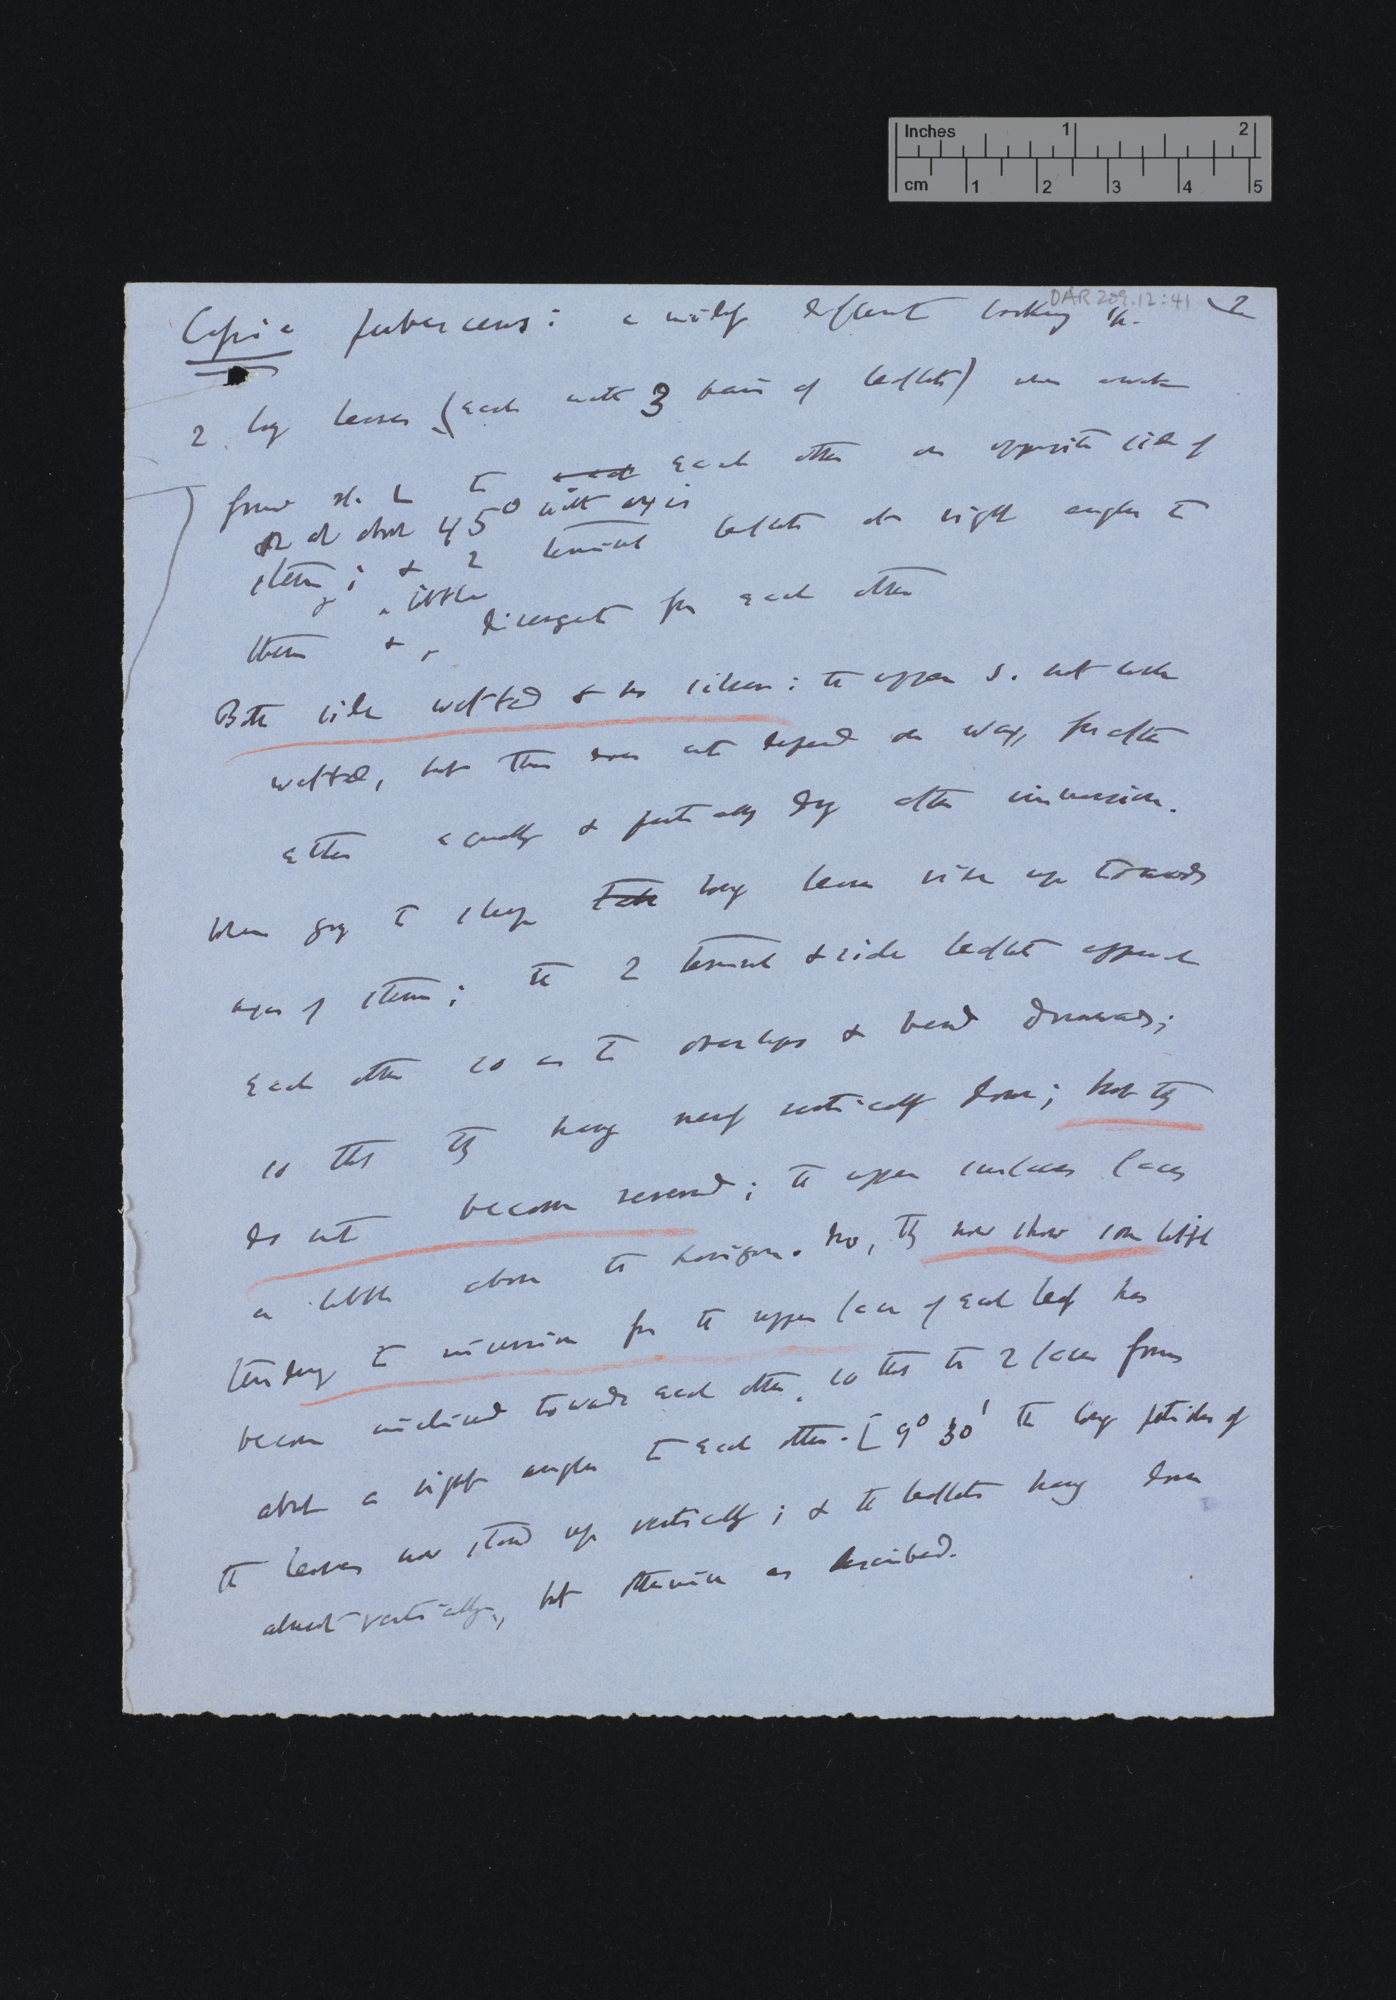 Inches 1 2
cm 1 2 3 4 5
DAR 209.12:41 2
Cassia pubescens: a widely different looking sp.
2 long leaves (each with 3 pairs of leaflets) when awake
form rt. L to each each other on opposite side of
or at about 45° with axis
stem; & 2 terminal leaflets at right angles to
a little
them & divergent from each other
Both sides wetted & no silver: the upper S. not well
wetted, but this does not depend on wax, for after
ether equally & partially dry after immersion.
When going to sleep long leaves rise up towards
axes of stem; the 2 terminal & side leaflets approach
each other so as to overlap & bend downwards;
so that they hang nearly vertically down; but they
do not become reversed; the upper surfaces faces
a little above the horizon. No, they now show some little
tendency to inversion for the upper face of each leaf has
become inclined towards each other, so that the 2 faces form
about a right angle to each other. [9° 30' the long petioles of
the leaves now stand up vertically; & the leaflets hang down
almost vertically, but otherwise as described.